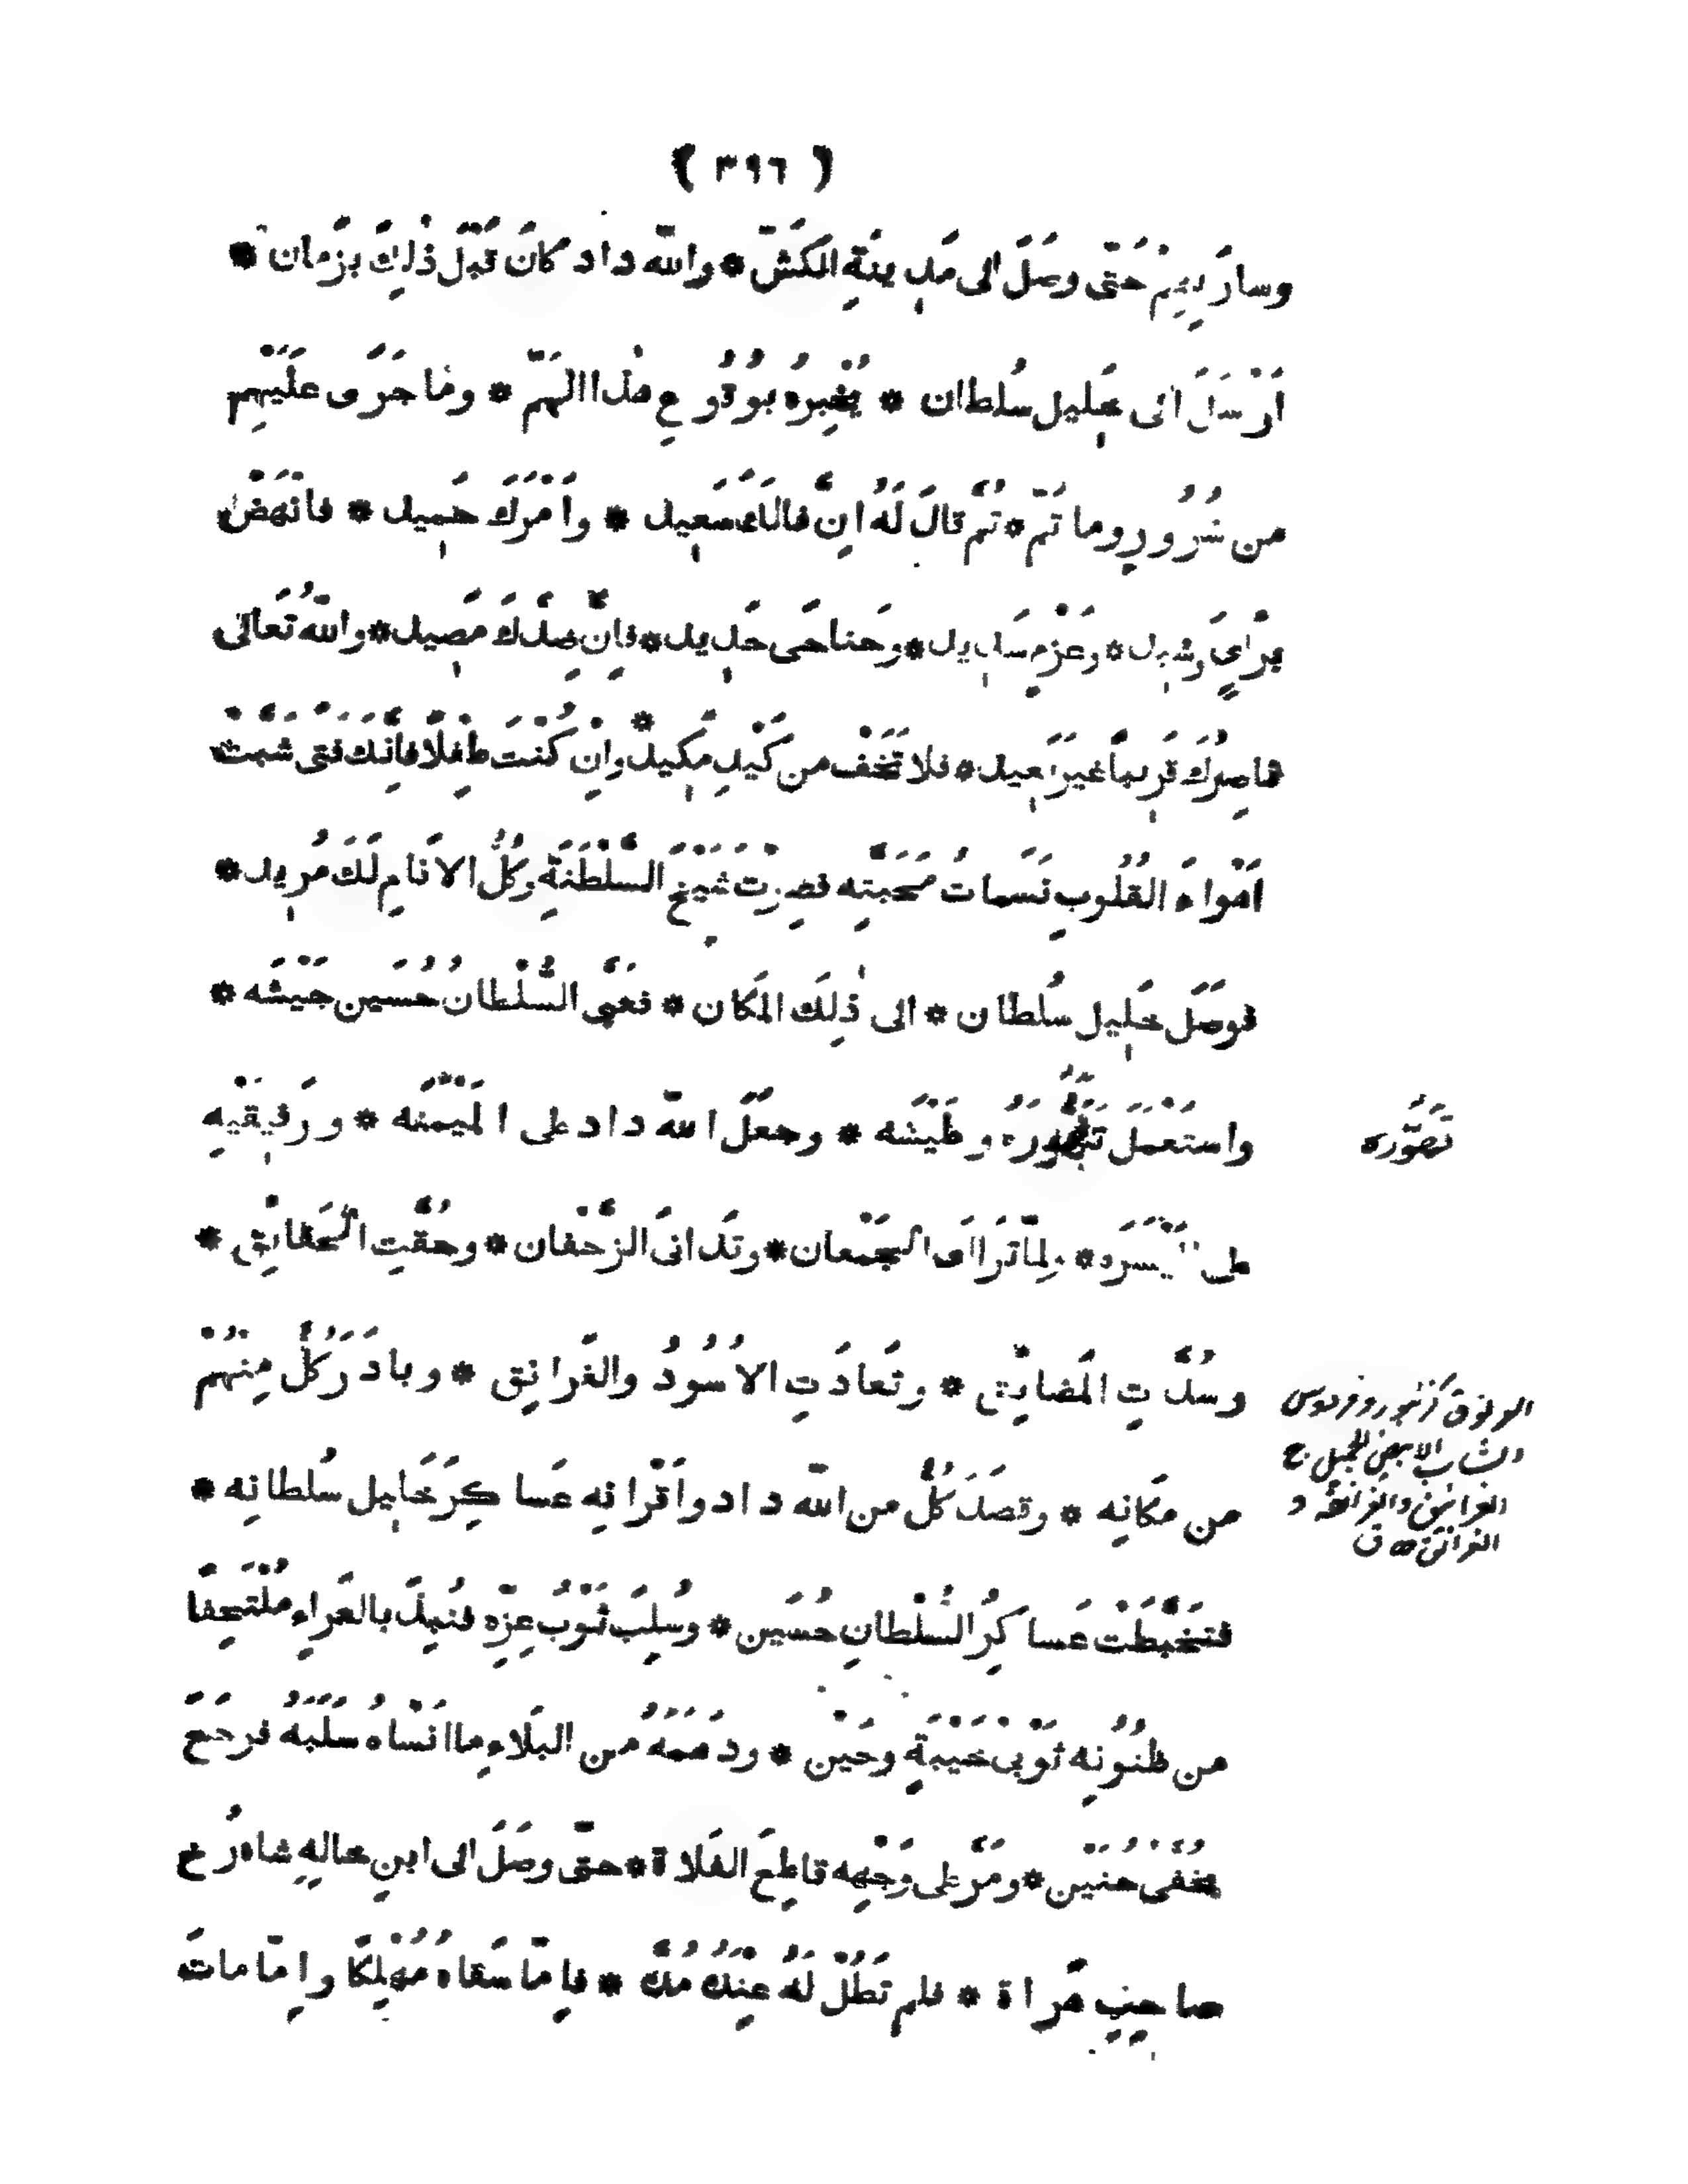 ( ٣٩٦ )
وسارَ بِهِمْ حَتّى وصَلَ الى مَدِينَةِ الكَشّ * والله داد كانَ قَبْلَ ذٰلِكَ بزَمان *
اَرْسَلَ الى خَلِيل سُلطان * يُخْبِرُه بوُقُوعِ هٰذا الهَمّ * وما جَرَى علَيْهِم
من شُرُورٍ وما تَمّ * ثُمّ قالَ لَهُ اِنّ فالَكَ سَعِيد * واَمْرَكَ حَمِيد * فانْهَضْ
برَأيٍ رشِيد * وعَزْمٍ سَدِيد * وجَناحَى حَدِيد * فاِنّ صِدْكَ مَصِيد * واللهُ تَعالى
ناصِرُكَ قَرِيباً غيرَ بَعِيد * فلا تَخَفْ من كَيْدِ مَكِيد * وانْ كُنْتَ طِفْلًا فاِنّكَ فتى شمت
اَهْواءَ القُلُوبِ نَسَماتُ مَحَبّتِه فصِرْتَ شَيْخَ السّلْطَنَةِ وكُلُّ الانامِ لَكَ مُرِيد *
فوَصَلَ خلِيل سُلطان * الى ذٰلِكَ المَكان * فعَبَّى السُّلْطان حُسَين جَيْشَه *
واستَعْمَلَ تَهَوُّرَهُ وطَيْشَه * وجعَلَ الله داد على المَيْمَنَه * ورَفِيقَيْهِ
على المَيْسَرَه * ولمّا تَراآى الجَمْعان * وتَدانَى الزّحْفان * وحُقّتِ الحَقائِق *
تَصَوُّرَه
وسُدّتِ المَضايِق * وتَعادَتِ الاُسُودُ والغَرانِق * وبادَرَ كُلٌّ مِنْهُمْ
الغرنوق كزنبور وفردوس
الشاب الابيض الجميل ج
الغرانيق والغرانقة و
الغرانق ق
من مَكانِه * وقصَدَ كُلٌّ من الله داد واَقْرانِه عَساكِرَ خَلِيل سُلطانِه *
فتَخَبّطَتْ عَساكِرُ السُّلْطانِ حُسَين * وسُلِبَ ثَوْبُ عِزّه فنُبِذَ بالعَراءِ مُلْتَحِفًا
من ظنُونِه ثَوْبَى خَيْبَةٍ وحَيْن * ودَهَمَهُ من البَلاءِ ما اَنْساهُ سَلَبَهُ فرجَعَ
بخُفّى حُنَيْن * ومَرّ على وَجْهِه قاطِعَ الفَلاة * حتّى وصَلَ الى ابنِ خالِهِ شاه رُخ
صاحِبِ هَراة * فلم تَطُلْ لَهُ عِنْدَهُ مُدّه * فاِمّا سَقاهُ مُهْلِكًا واِمّا ماتَ